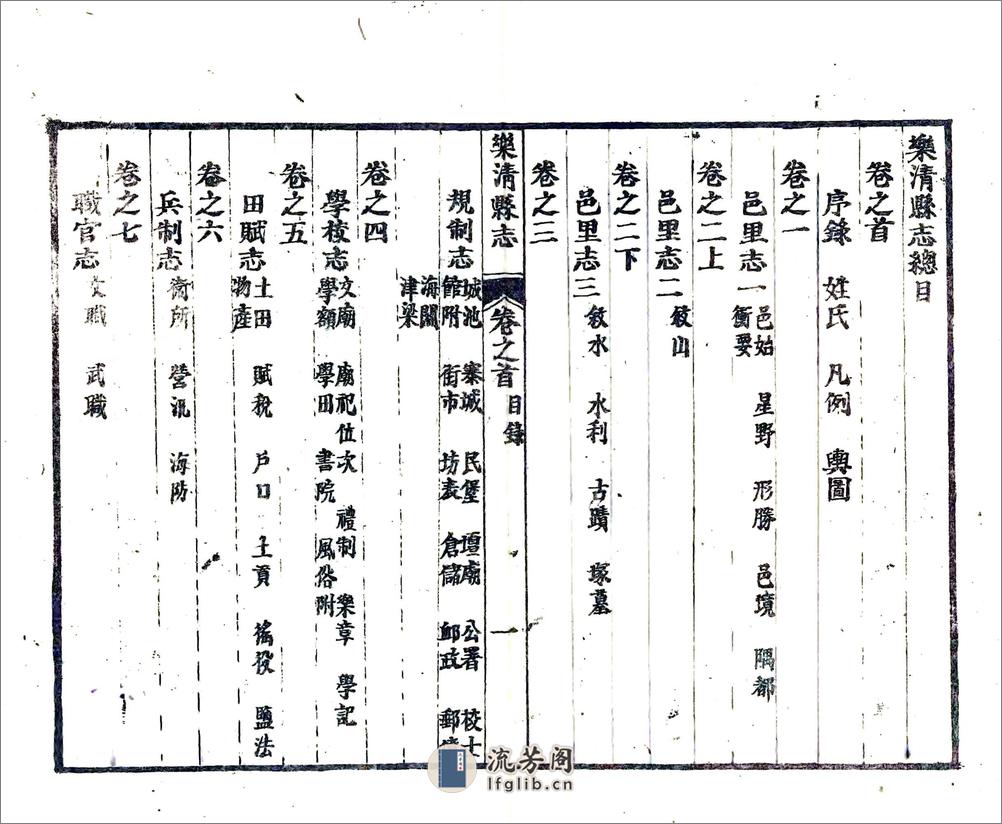 樂清縣志總目
卷之首
序錄 姓氏 凡例 輿圖
卷之一
邑里志一 邑始 星野 形勝 邑境 隅都
衝要
卷之二上
邑里志二 敘山
卷之二下
邑里志三 敘水 水利 古蹟 塚墓
卷之三
樂清縣志 卷之首 目錄 一
規制志 城池 寨城 民堡 壇廟 公署 校士
館附 街市 坊表 倉儲 卹政 郵
海關
津梁
卷之四
學校志 文廟 廟祀位次 禮制 樂章 學記
學額 學田 書院 風俗附
卷之五
田賦志 土田 賦稅 戶口 土貢 徭役 鹽法
物產
卷之六
兵制志 衛所 營汛 海防
卷之七
職官志 文職 武職
流芳阁
lfglib.cn